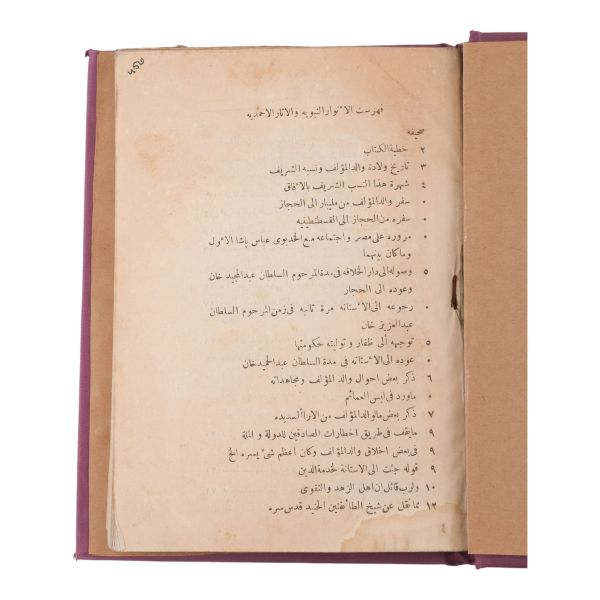 ٤٥٧
فهرست الانوار النبويه والاثار الاحمديه
صحيفه
٢ خطبة الكتاب
٣ تاريخ ولادة والد المؤلف ونسبه الشريف
٤ شهرة هذا النسب الشريف بالافاق
٠ سفر والد المؤلف من مليبار الى الحجاز
٠ سفره من الحجاز الى القسطنطينيه
٠ مروره على مصر واجتماعه مع الخديوى عباس پاشا الاول
وما كان بينهما
٥ وصوله الى دار الخلافه فى مدة المرحوم السلطان عبد المجيد خان
وعوده الى الحجار
٠ رجوعه الى الاستانه مرة ثانيه فى زمن المرحوم السلطان
عبد العزيز خان
٥ توجهه ألى ظفار و توليته حكومتها
٠ عوده الى الاستانه فى مدة السلطان عبد الحميد خان
٦ ذكر بعض احوال والد المؤلف ومجاهداته
٠ ماورد فى لبس العمائم
٧ ذكر بعض مالوالد المؤلف من الارا السديده
٩ مايتقف فى طريق اخطارات الصادقين للدولة و الملة
٩ فى بعض اخلاق والد المؤلف وكان أعظم شئ يسره الخ
٩ قوله جئت الى الاستانة لخدمة الدين
١٠ ولرب قائل ان اهل الزهد والتقوى
١٢ مما نقل عن شيخ الطائفتين الجنيد قدس سره